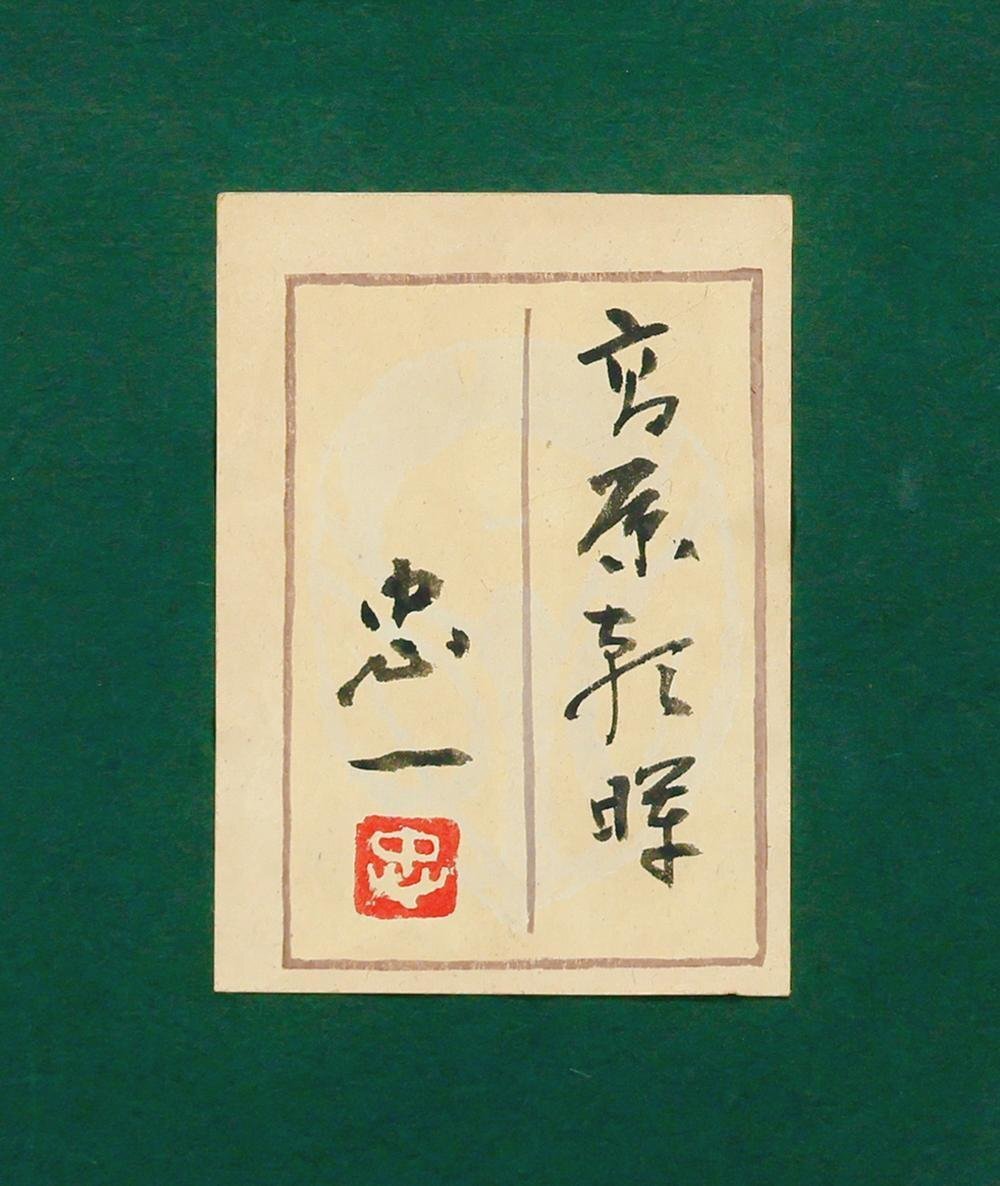 高原朝暉
忠一
忠